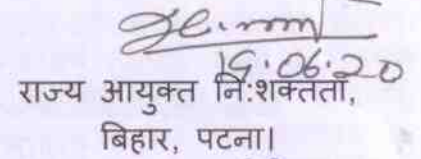 19.06.20
राज्य आयुक्त नि:शक्तता,
बिहार, पटना।